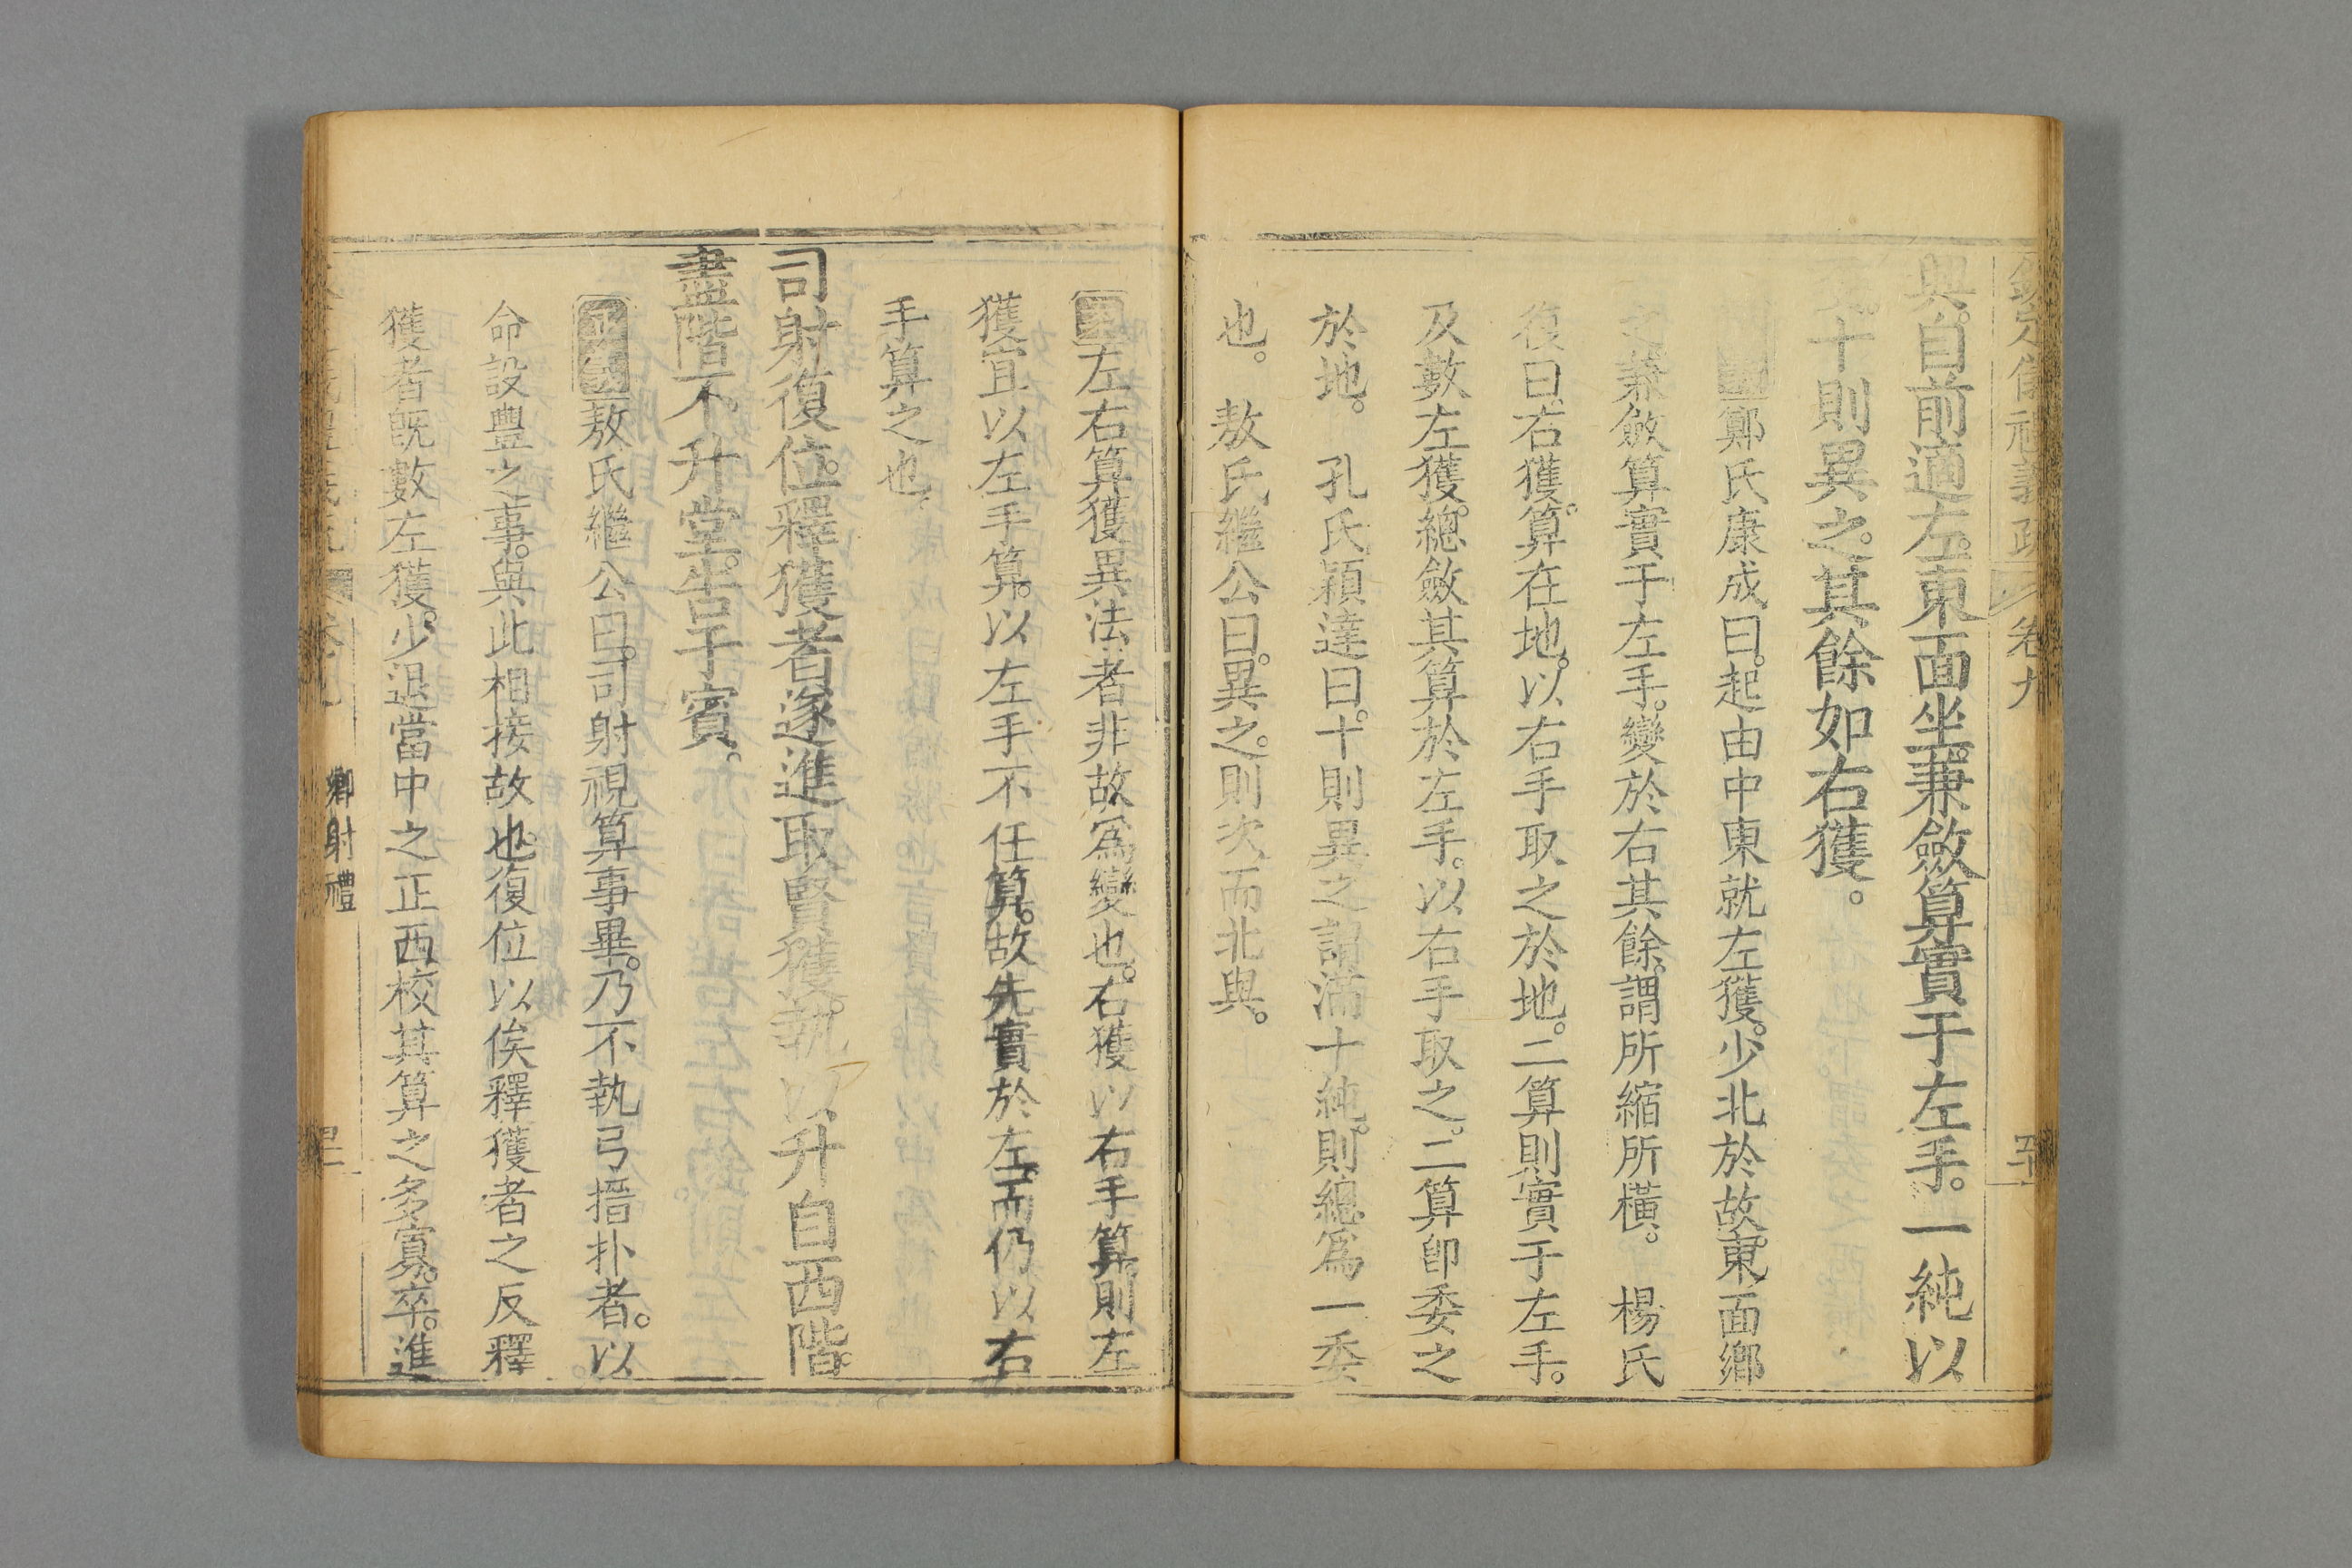 欽定儀禮義疏 卷九
興。自前適左。東面坐。兼斂算實于左手。一純以
十則異之。其餘如右獲。
鄭氏康成曰。起由中東就左獲。少北於故。東面鄉
之。兼斂算實于左手。變於右其餘。謂所縮所橫。 楊氏
復曰。右獲。算在地。以右手取之於地。二算則實于左手。
及數左獲。總斂其算於左手。以右手取之。二算卽委之
於地。 孔氏穎達曰。十則異之。謂滿十純。則總爲一委
也。 敖氏繼公曰。異之。則次而北與。
案左右算獲異法者。非故爲變也。右獲以右手算。則左
獲宜以左手算。以左手不任算。故先實於左。而仍以右
手算之也。
司射復位。釋獲者遂進取賢獲。執以升自西階。
盡階不升堂。告于賓。
正義敖氏繼公曰。司射視算事畢。乃不執弓搢扑者。以
命設豐之事。與此相接故也。復位以俟釋獲者之反釋
獲者旣數左獲。少退當中之正西校其算之多寡。卒。進
鄉射禮